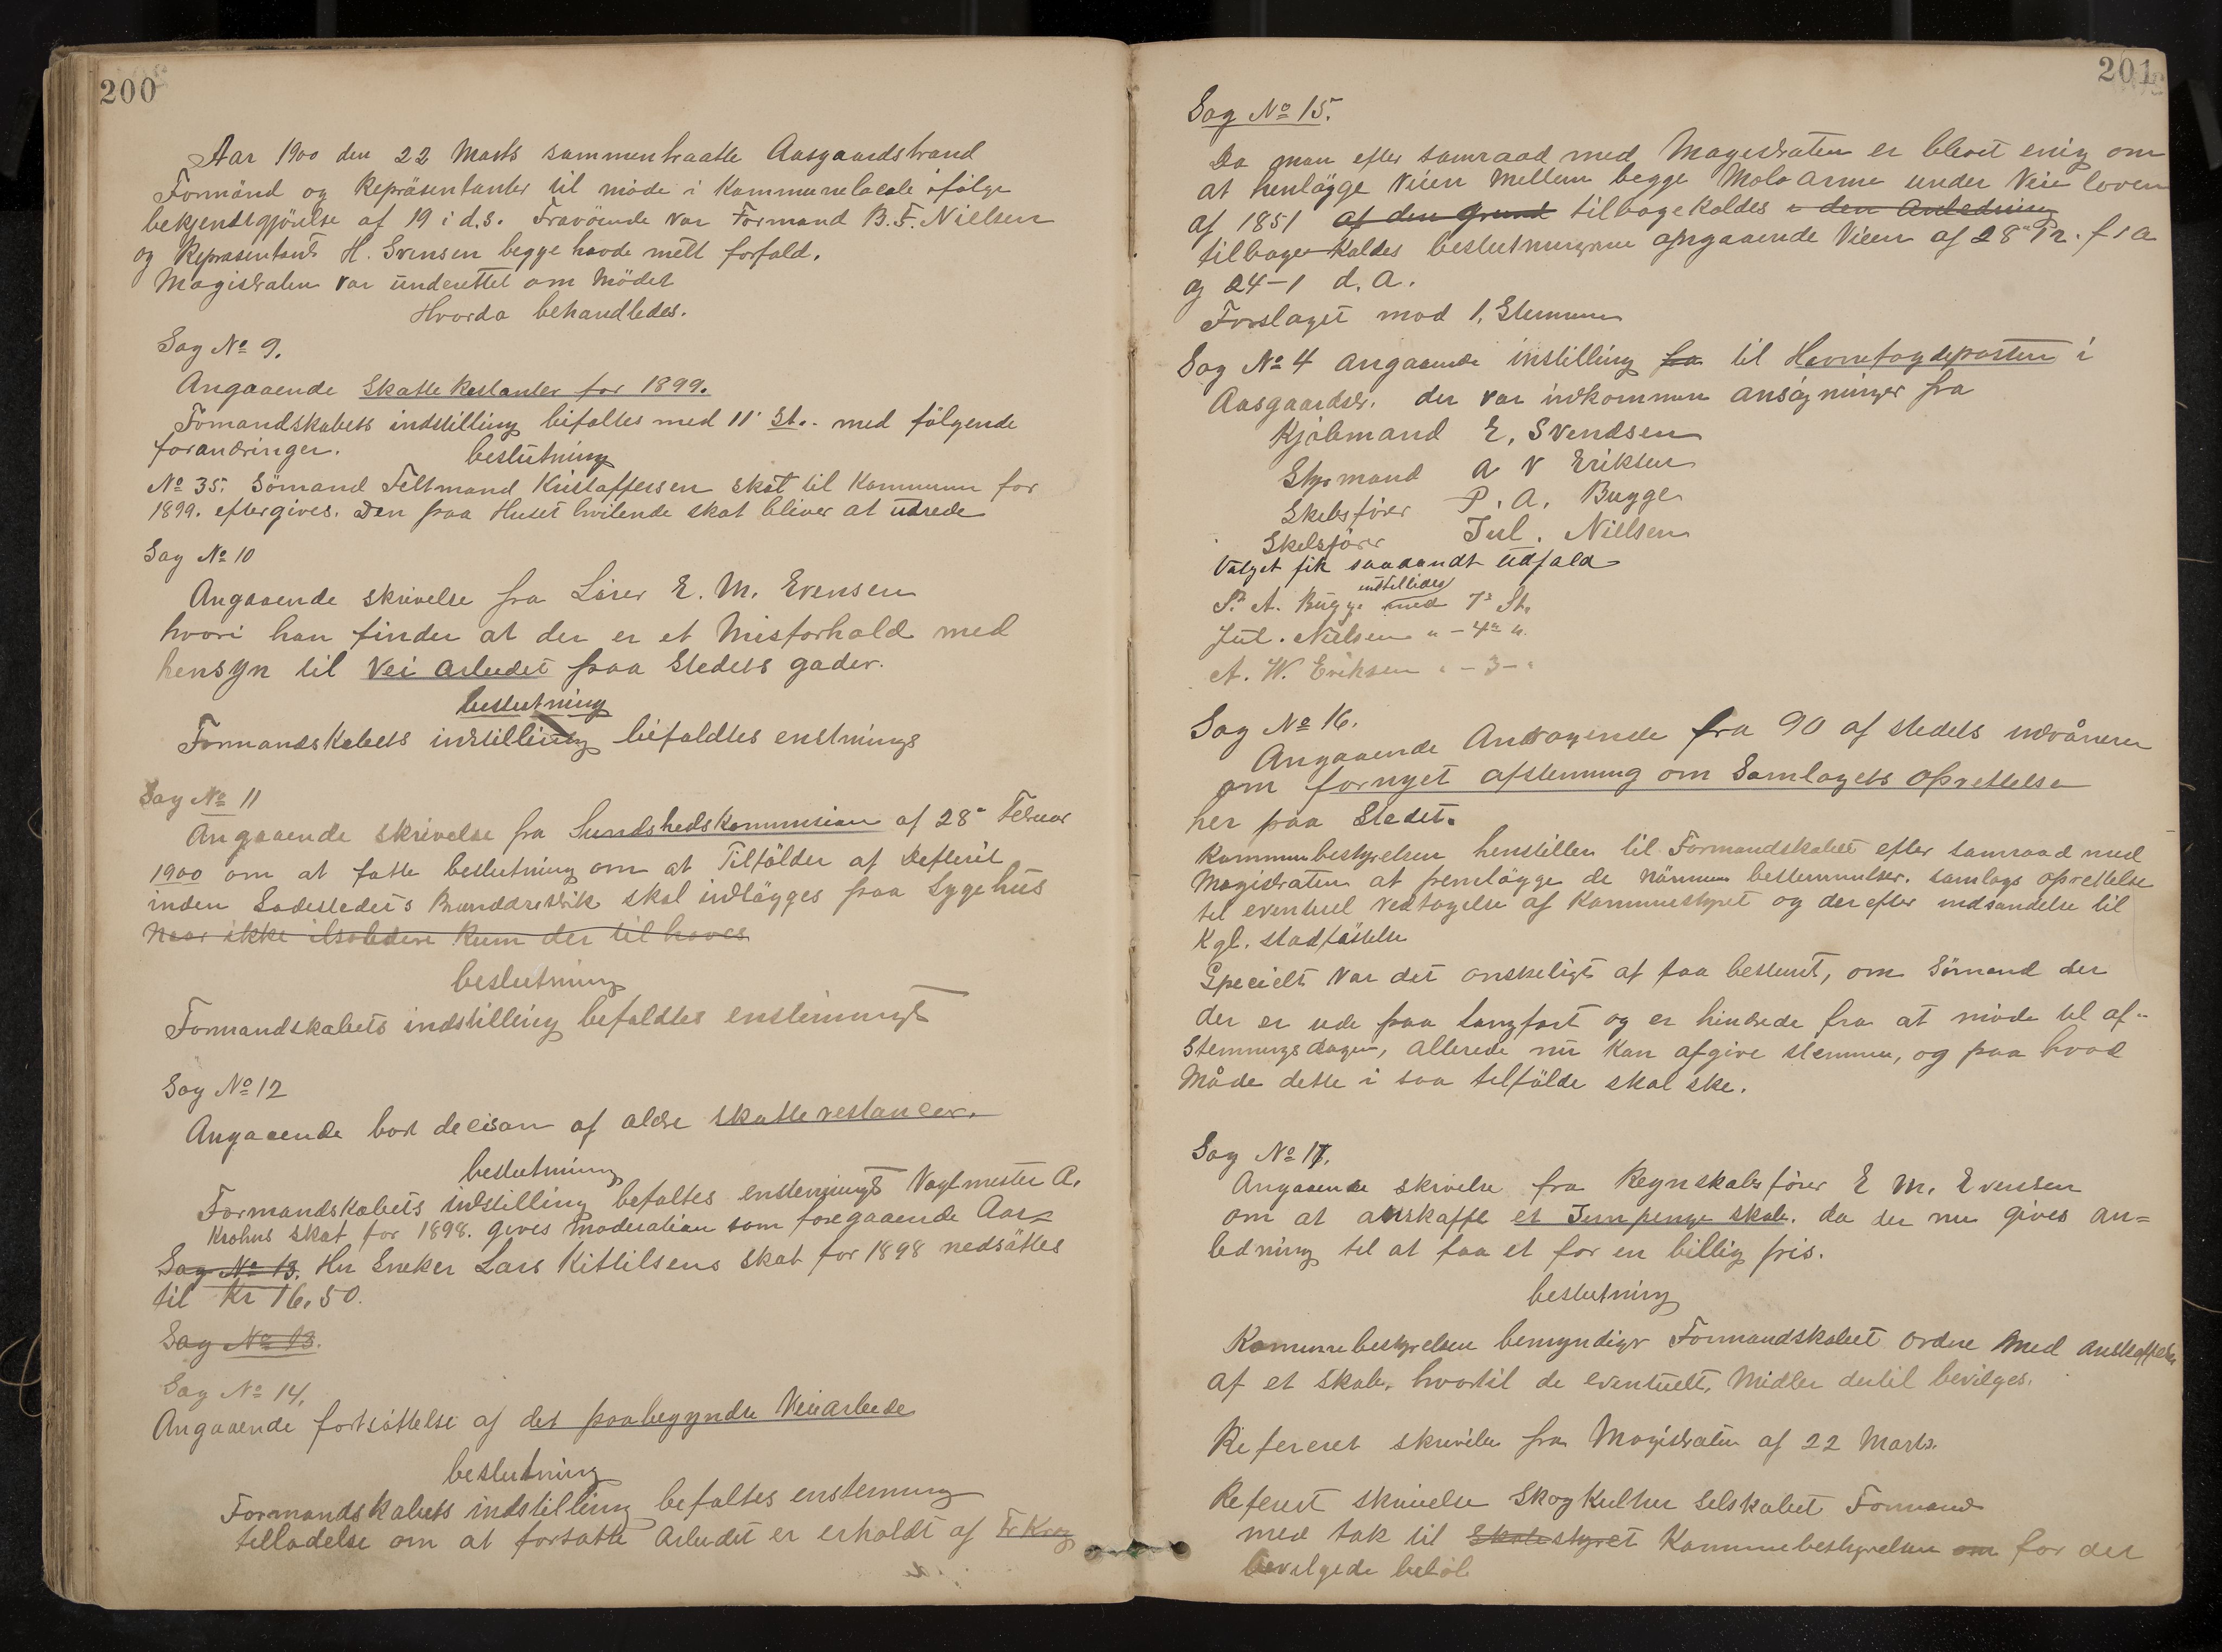 200
Aar 1900 den 22 Marts sammentraatte Aasgaardstrand
Formänd og Repräsentanter til möde i Kommunelocale ifölge
bekjendtgjörelse af 19 i d.s. Fravörende var Formand B. F. Nielsen
og Repräsentant H. Svensen begge havde mält forfald.
Magistraten var underettet om Mödet
Hvorda behandledes.
Sag No 9.
Angaaende Skatte Restanter for 1899.
Fomandskabets indstilling bifaltes med 11 St. med fölgende
forandringer.
beslutning
No 35. Sömand Feltmand Kristoffersen skat til Kommunen for
1899. eftergives. Den paa Huset hvilende skat bliver at udrede
Sag No 10
Angaaende skrivelse fra Lärer E. M. Evensen
hvori han finder at der er et Misforhold med
hensyn til Vei arbeidet paa Stedets gader.
beslutning
Formandskabets indstilling bifaldtes enstmings
Sag No 11
Angaaende skrivelse fra Sundhedskommision af 28 Februar
1900 om at fatte beslutning om at Tilfölder af Defterit
inden Ladestedets Branddistrik skal indlägges paa Sygehus
Naar ikke ilsoledere Rum der til haves
beslutning
Formandskabets indstilling befaldtes enstemmigt
Sag No 12
Angaaende bort decison af aldre skatterestancer.
beslutning
Formandskabets indstilling befaltes enstemmigt Vagtmester A.
Krohns skat for 1898. gives moderation som foregaaende Aar
Sag No 13. Hr Sneker Lars Kittilsens skat for 1898 nedsättes
til Kr 16.50.
Sag No 13.
Sag No 14.
Angaaende fortsättelse af det paabegyndte Veiarbeide
beslutning
Formandskabets indstilling befaltes enstemmig
telladelse om at fortsatte Arbeidet er erholdt af Fr Krog
201
Sag No 15.
Da man efter samraad med Magistraten er blevet enig om
at henlägge Veien Mellem begge Molo Arme under Veie loven
af 1851 af den grund tilbagekaldes i den Anledning
tilbage kaldes beslutningerne angaaende Veien af 28 f. a
og 24-1 d. A.
Forslaget mod 1. Stemme
Sag No 4 angaaende instilling fra til Havnefogdeposten i
Aasgaardstr. der var indkommen ansögninger fra
Kjöbmand E. Svendsen
Styrmand A V Eriksen
Skibsförer P. A. Bugge
Skibsförer Jul. Nielsen
Valget fik saadandt Udfald
indstilledes
P. A. Bugge med 7 St.
Jul. Nielsen " - 4 "
A. W. Eriksen " - 3 - "
Sag No 16.
Angaaende Andragende fra 90 af stedets indvånere
om fornyet afstemning om Samlagets oprettelse
her paa Stedet.
Kommunbestyrelsen henstiller til Formandskabet efter samraad med
Magistraten at fremlägge de närmere bestemmelser. samlags oprettelse
til eventuel vedtagelse af Kommunestyret og derefter indsendelse til
Kgl. stadfästelse
Specielt var det önskeligt at faa bestemt, om Sömänd der
der er ude paa langfart og er hindrede fra at möde til af-
Stemningsdagen, allerede nu kan afgive stemme, og paa hvad
Måde dette i saa telfälde skal ske.
Sag No 17.
Angaaende skrivelse fra Regnskabsförer E M. Evensen
om at anskaffe et Jernpenge skab. da der nu gives an=
ledning til at faa et for en billig pris.
beslutning
Kommunebestyrelsen bemyndiger Formandskabet ordne med Anskaffelse
af et skab. hvortil de eventuelt, Midler dertil bevilges.
Refereret skrivelse fra Magistraten af 22 Marts.
Referert skrivelse Skogkultur Selskabet Formand
med tak til Skolestyret Kommunebestyrelsen om for det
bevilgede belöb